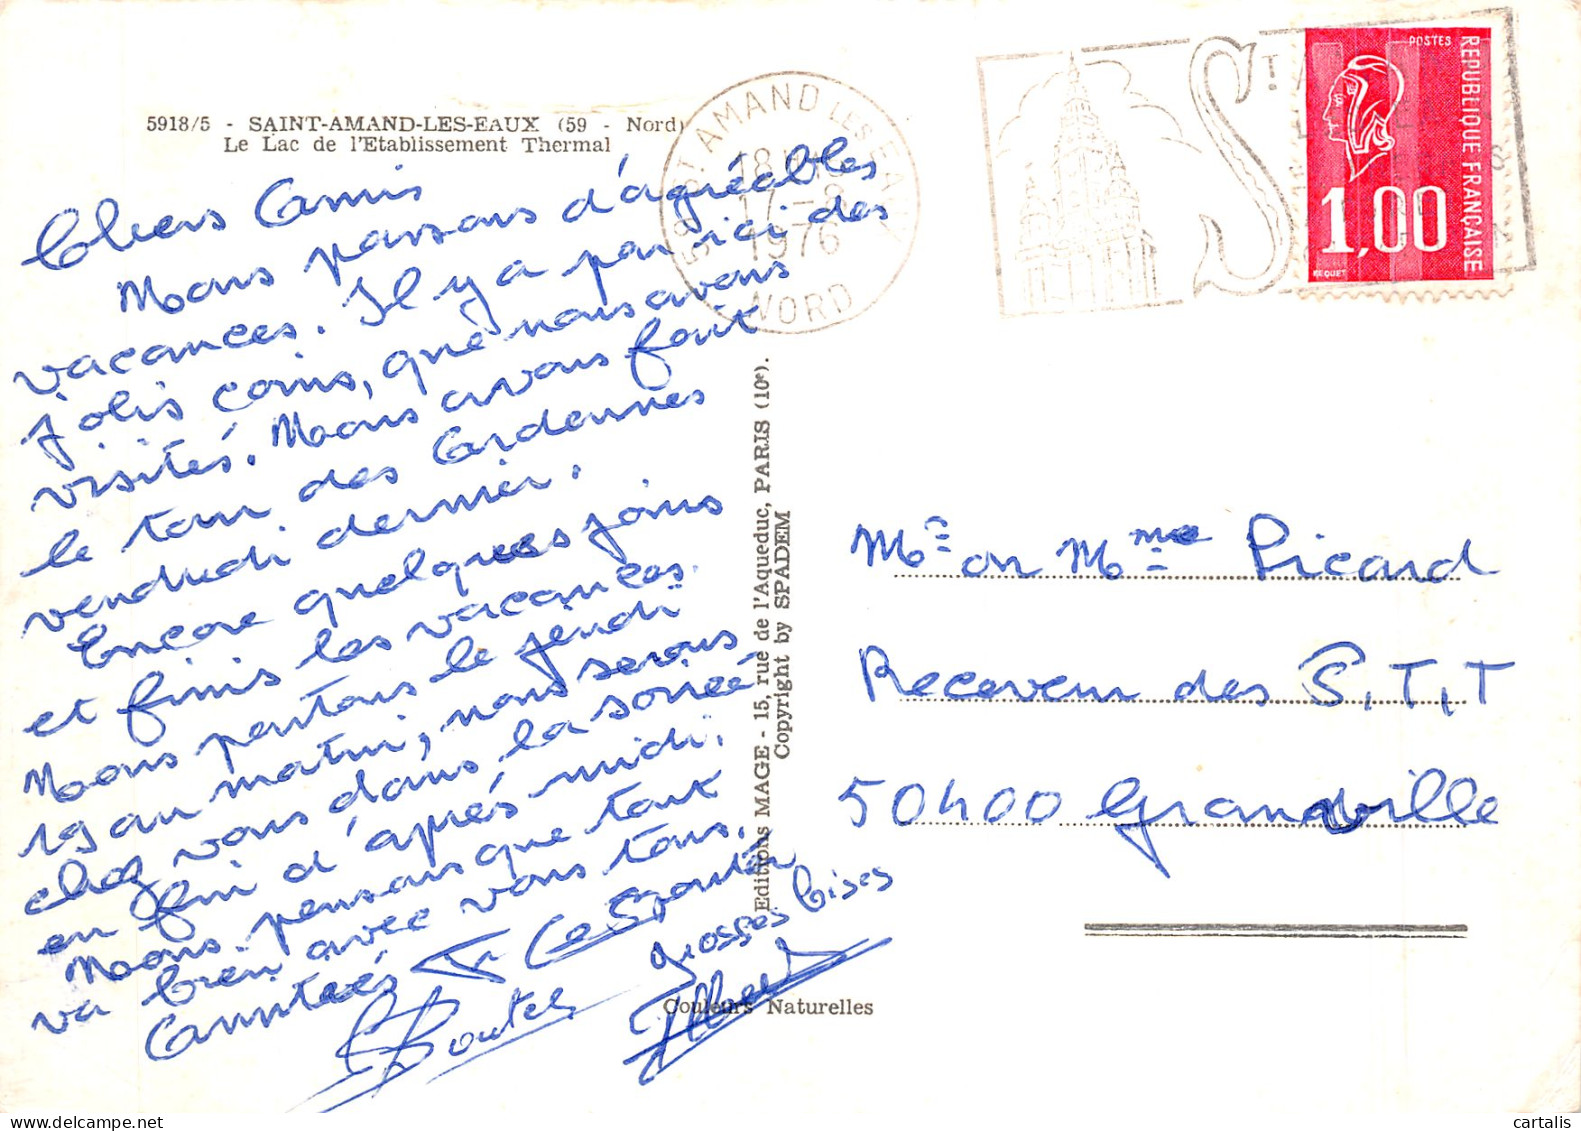 5918/5 - SAINT-AMAND-LES-EAUX (59 - Nord)
Le Lac de l'Etablissement Thermal
Chers Camis
Nous passons d'agréables
vacances. Il y a par ici des
jolis coins, que nous avons
visités. Nous avons fait
le tour des Ardennes
vendredi dernier.
Encore quelques jours
et finis les vacances.
Nous partons le jeudi
19 au matin, nous serons
chez vous dans la soirée
en fin d'après midi.
Nous pensons que tout
va bien avec vous tous.
Amitiés
Grosses bises
59 ST AMAND LES EAUX
18H
17-8
1976
NORD
ST
POSTES
REPUBLIQUE FRANÇAISE
1,00
BEQUET
Editions MAGE - 15, rue de l'Aqueduc, PARIS (10e).
Copyright by SPADEM
Couleurs Naturelles
Mr ou Mme Picard
Receveur des P,T,T
50400 Granville
cartalis